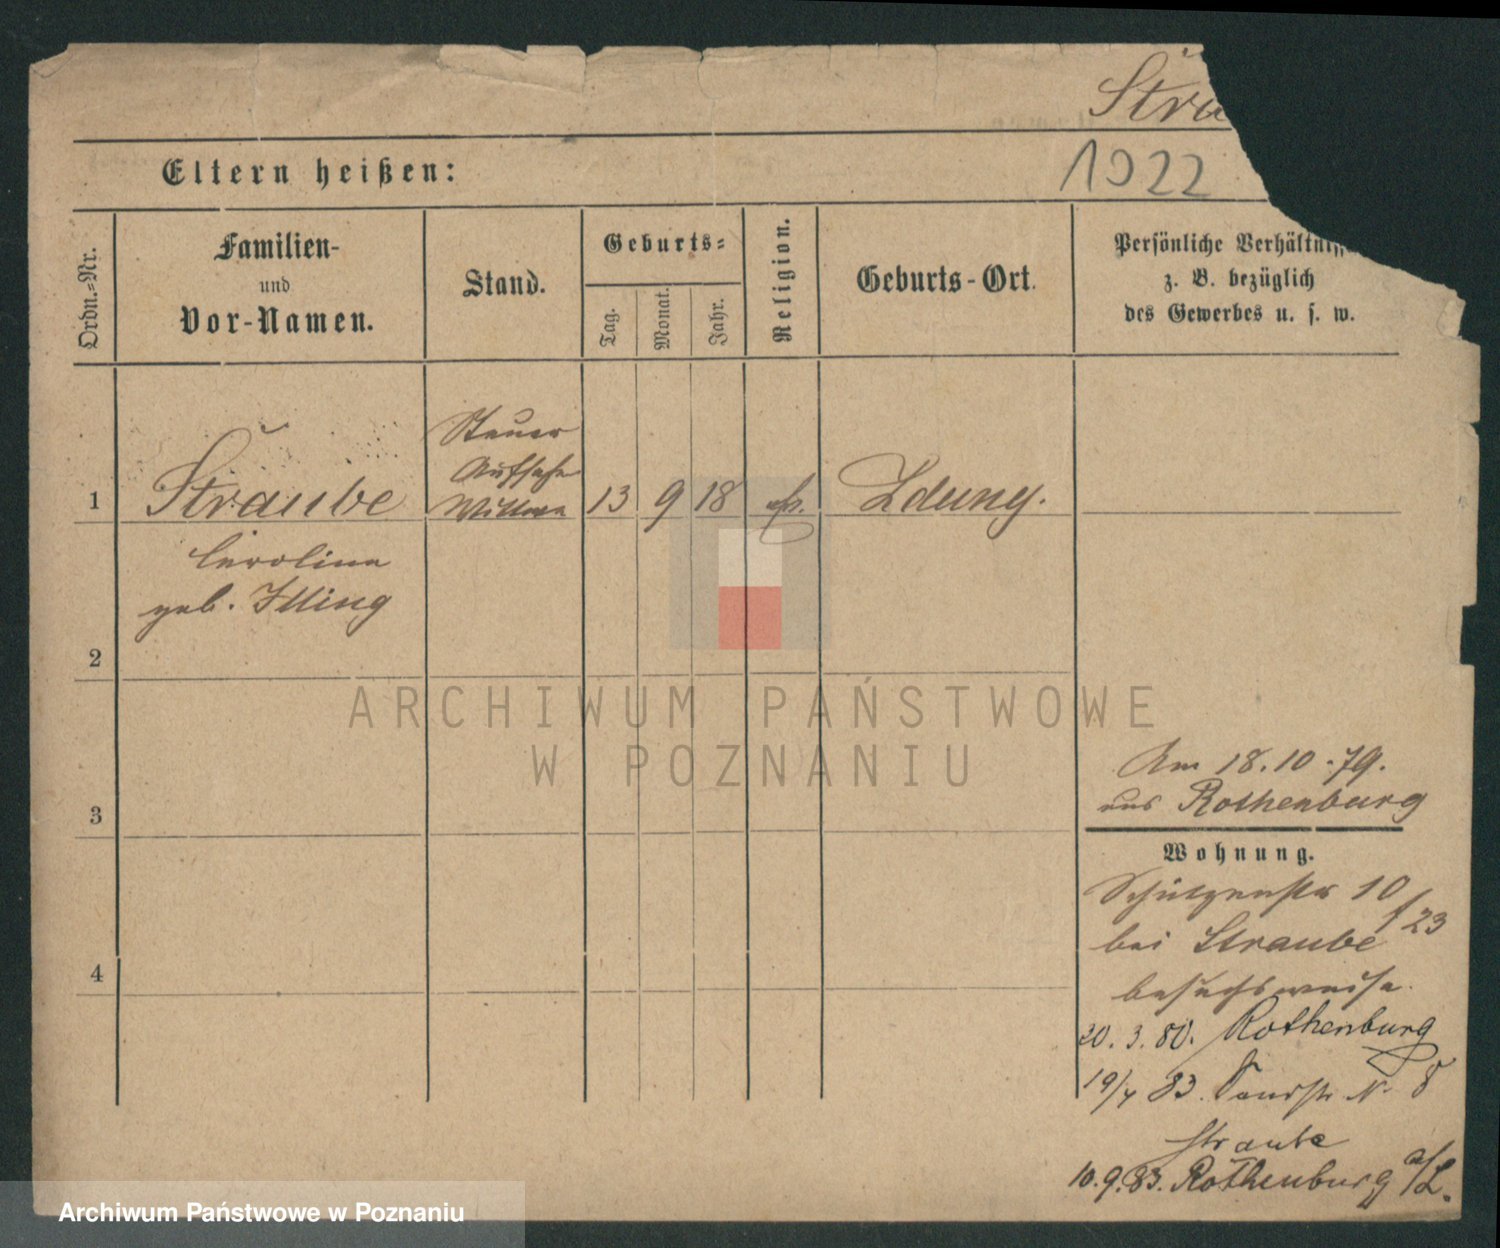 Strau
1922
Eltern heißen:
Ordn.-Nr.
Familien-
und
Vor-Namen.
Stand.
Geburts-
Tag.
Monat.
Jahr.
Religion.
Geburts-Ort.
Persönliche Verhältniss
z. B. bezüglich
des Gewerbes u. s. w.
1
Straube
Steuer
Aufseher
Wittwe
13
9
18
Zduny.
Caroline
geb. Illing
2
ARCHIWUM PAŃSTWOWE
W POZNANIU
Am 18.10.79.
aus Rothenburg
3
Wohnung.
Schützenstr 10
/23
bei Straube
besuchsweise.
4
20. 3. 80. Rothenburg
19/4 83. N. 8
Straube
10.9.83. Rothenburg a/L.
Archiwum Państwowe w Poznaniu